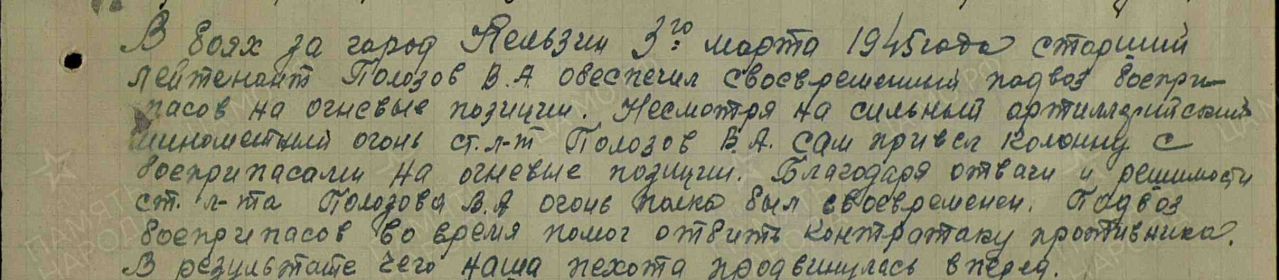 В боях за город Пельзин 3го марта 1945 года старший
лейтенант Полозов В.А. обеспечил своевременний подвоз боепри-
пасов на огневые позиции. Несмотря на сильный артиллерийский
минометный огонь ст. л-т Полозов В.А. сам привел колонну с
боеприпасами на огневые позиции. Благодаря отваги и решимости
ст. л-та Полозова В.А огонь полка был своевременен. Подвоз
боеприпасов во время помог отбить контратаку противника.
В результате чего наша пехота продвинулась вперед.